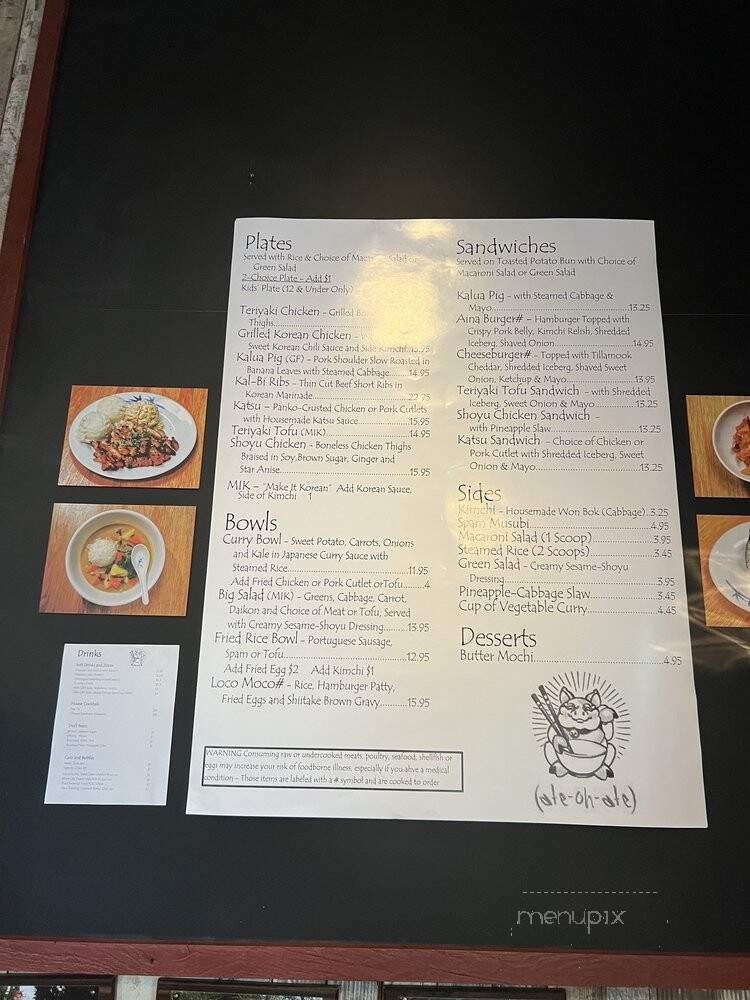 Plates
Served with Rice & Choice of Macaroni Salad or
Green Salad
2-Choice Plate - Add $1
Kids' Plate (12 & Under Only)
Teriyaki Chicken - Grilled
Thighs
Grilled Korean Chicken -
Sweet Korean Chili Sauce and Side Kimchi
Kalua Pig (GF) - Pork Shoulder Slow Roasted in
Banana Leaves with Steamed Cabbage......14.95
Kal-Bi Ribs - Thin Cut Beef Short Ribs in
Korean Marinade
Katsu - Panko-Crusted Chicken or Pork Cutlets
with Housemade Katsu Sauce......15.95
Teriyaki Tofu (MIK)......14.95
Shoyu Chicken - Boneless Chicken Thighs
Braised in Soy,Brown Sugar, Ginger and
Star Anise......15.95
MIK - "Make It Korean" Add Korean Sauce,
Side of Kimchi 1
Bowls
Curry Bowl - Sweet Potato, Carrots, Onions
and Kale in Japanese Curry Sauce with
Steamed Rice......11.95
Add Fried Chicken or Pork Cutlet orTofu......4
Big Salad (MIK) - Greens, Cabbage, Carrot,
Daikon and Choice of Meat or Tofu, Served
with Creamy Sesame-Shoyu Dressing......13.95
Fried Rice Bowl - Portuguese Sausage,
Spam or Tofu......12.95
Add Fried Egg $2 Add Kimchi $1
Loco Moco# - Rice, Hamburger Patty,
Fried Eggs and Shiitake Brown Gravy......15.95
WARNING Consuming raw or undercooked meats, poultry, seafood, shellfish or
eggs may increase your risk of foodborne illness, especially if you ahve a medical
condition - Those items are labeled with a # symbol and are cooked to order
Sandwiches
Served on Toasted Potato Bun with Choice of
Macaroni Salad or Green Salad
Kalua Pig - with Steamed Cabbage &
Mayo......13.25
Aina Burger# - Hamburger Topped with
Crispy Pork Belly, Kimchi Relish, Shredded
Iceberg, Shaved Onion......14.95
Cheeseburger# - Topped with Tillamook
Cheddar, Shredded Iceberg, Shaved Sweet
Onion, Ketchup & Mayo......13.95
Teriyaki Tofu Sandwich - with Shredded
Iceberg, Sweet Onion & Mayo......13.25
Shoyu Chicken Sandwich -
with Pineapple Slaw......13.25
Katsu Sandwich - Choice of Chicken or
Pork Cutlet with Shredded Iceberg, Sweet
Onion & Mayo......13.25
Sides
Kimchi - Housemade Won Bok (Cabbage).3.25
Spam Musubi......4.95
Macaroni Salad (1 Scoop)......3.95
Steamed Rice (2 Scoops)......3.45
Green Salad - Creamy Sesame-Shoyu
Dressing......3.95
Pineapple-Cabbage Slaw......3.45
Cup of Vegetable Curry......4.45
Desserts
Butter Mochi......4.95
(ate-oh-ate)
Drinks
menupix